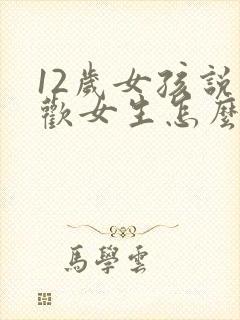 12歲女孩說
歡女生怎麼
馬學雲